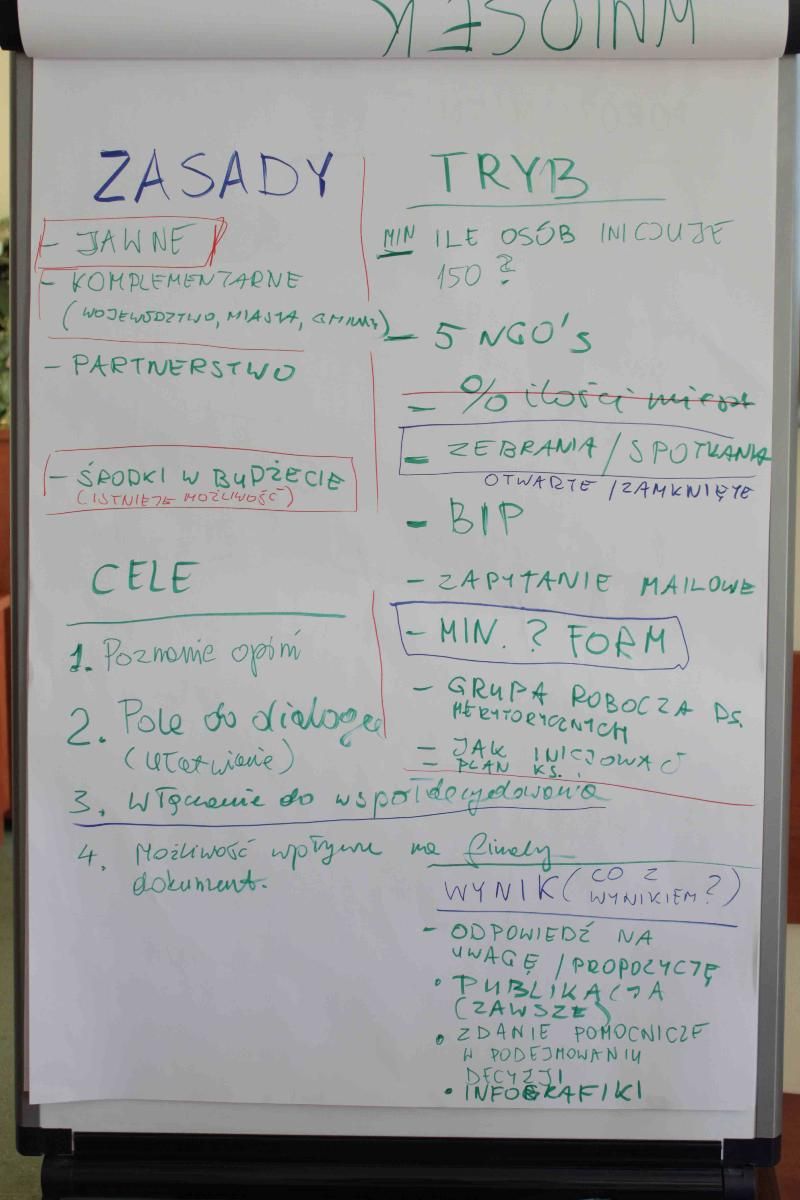 WNIOSEK
ZASADY
- JAWNE
- KOMPLEMENTARNE
(WOJEWÓDZTWO, MIASTA, GMINY)
- PARTNERSTWO
- ŚRODKI W BUDŻECIE
(ISTNIEJE MOŻLIWOŚĆ)
CELE
1. Poznanie opinii
2. Pole do dialogu
(Ułatwienie)
3. Włączenie do współdecydowania
4. Możliwość wpływu na finalny
dokument.
TRYB
MIN ILE OSÓB INICJUJE
150 ?
- 5 NGO's
- % ilości
- ZEBRANIA / SPOTKANIA
OTWARTE / ZAMKNIĘTE
- BIP
- ZAPYTANIE MAILOWE
- MIN. ? FORM
- GRUPA ROBOCZA DS.
MERYTORYCZNYCH
- JAK INICJOWAĆ
- PLAN KS.
WYNIK (CO Z
WYNIKIEM?)
- ODPOWIEDŹ NA
UWAGĘ / PROPOZYCJĘ
• PUBLIKACJA
(ZAWSZE)
• ZDANIE POMOCNICZE
W PODEJMOWANIU
DECYZJI
• INFOGRAFIKI